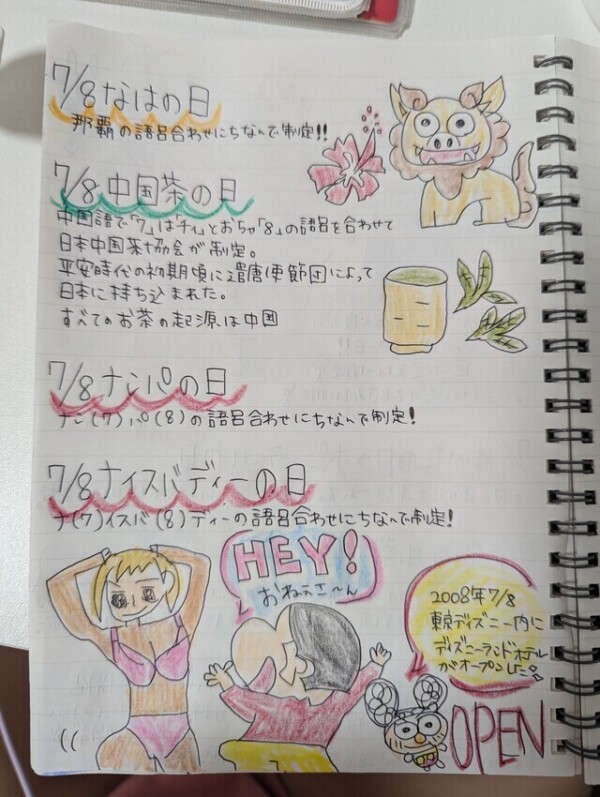 7/8 なはの日
那覇の語呂合わせにちなんで制定!!
7/8 中国茶の日
中国語で「7」は「チィ」とおちゃ「8」の語呂を合わせて
日本中国茶協会が制定。
平安時代の初期頃に遣唐使節団によって
日本に持ち込まれた。
すべてのお茶の起源は中国
7/8 ナンパの日
ナン(7)パ(8)の語呂合わせにちなんで制定!
7/8 ナイスバディーの日
ナ(7)イスバ(8)ディーの語呂合わせにちなんで制定!
HEY!
おねぇさ〜ん
2008年7/8
東京ディズニー内に
ディズニーランドホテル
がオープンした
OPEN